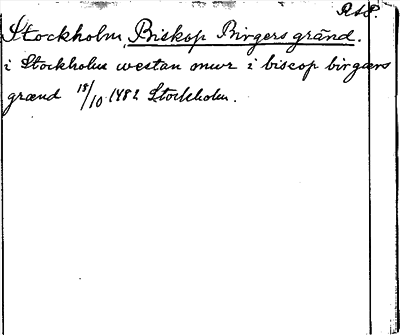 RAP.
Stockholm, Biskop Birgers gränd.
i Stockholm westan mwr i biscop birgærs
grænd 18/10 1482 Stockholm.